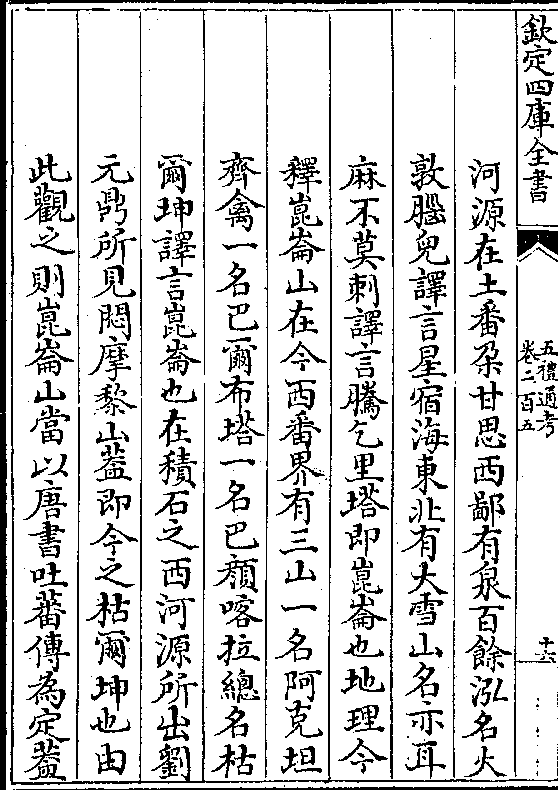 欽定四庫全書
五禮通考
卷二百五
十六
河源在土番朶甘思西鄙有泉百餘泓名火
敦腦兒譯言星宿海東北有大雪山名亦耳
麻不莫剌譯言騰乞里塔即崑崙也地理今
釋崑崙山在今西番界有三山一名阿克坦
齊禽一名巴爾布塔一名巴顔喀拉總名枯
爾坤譯言崑崙也在積石之西河源所出劉
元鼎所見悶摩黎山葢即今之枯爾坤也由
此觀之則崑崙山當以唐書吐蕃傳為定葢